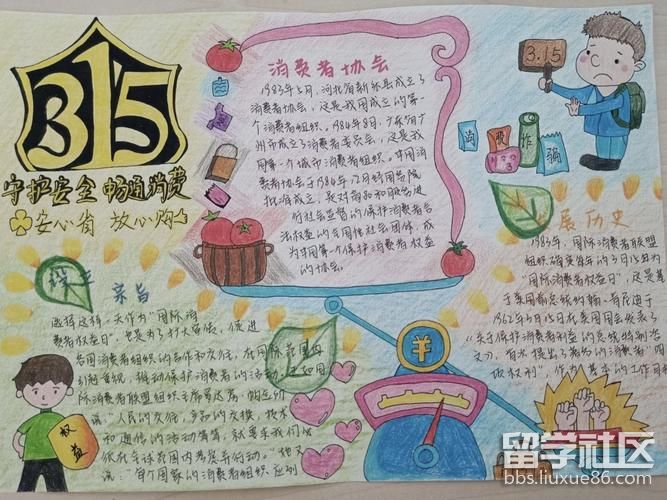 315
守护安全 畅通消费
安心省 放心购
消费者协会
1983年5月，河北省新乐县成立了
消费者协会，这是我国成立的第一
个消费者组织。1984年8月，广东省广
州市成立了消费者委员会，这是我
国第一个城市消费者组织。中国消
费者协会于1984年12月经国务院
批准成立，是对商品和服务进
行社会监督的保护消费者合
法权益的全国性社会团体，成
为中国第一个保护消费者权益
的协会。
3.15
消 费 诈 骗
展历史
1983年，国际消费者联盟
组织确定每年的3月15日为
"国际消费者权益日"，这是基
于美国前总统约翰·肯尼迪于
1962年3月15日在美国国会发表了
《关于保护消费者利益的总统特别咨
文》，首次提出了著名的消费者"四
项权利"，作为 基本的工作目标
宗旨
选择这样一天作为"国际消
费者权益日"，也是为了扩大宣传，促进
各国消费者组织的合作和交往，在国际范围内
引起重视，推动保护消费者的活动，正如国
际消费者联盟组织
说："人民的交往，产品的交换，技术
和通信的活动
说："每个国家的消费者组织应到
权益
¥
留学社区
bbs.liuxue86.com